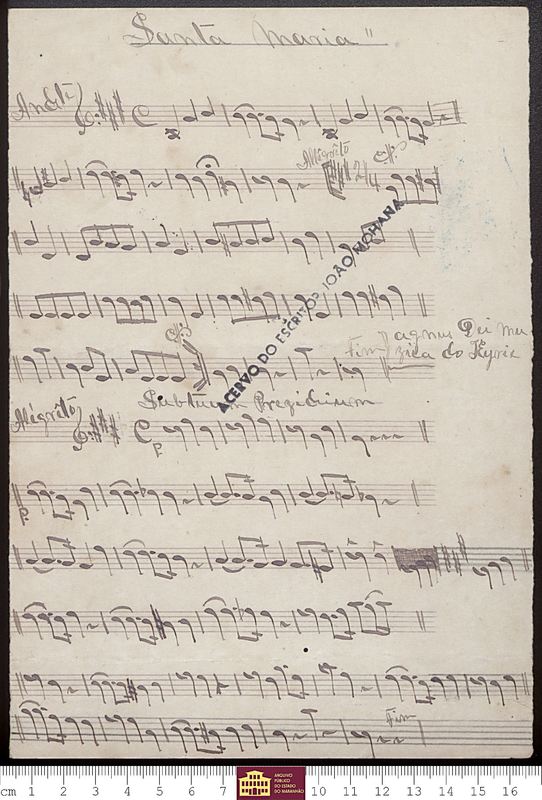 Santa Maria"
Andte
C
Allegrêto
2/4
ACERVO DO ESCRITOR JOÃO MOHANA
Fim
agnus Dei mu
zica do Kyrie
Subtuum Prezidium
Alegrêto
C
P.
P.
Fim
cm 1 2 3 4 5 6 7 10 11 12 13 14 15 16
ARQUIVO
PÚBLICO
DO ESTADO
DO MARANHÃO